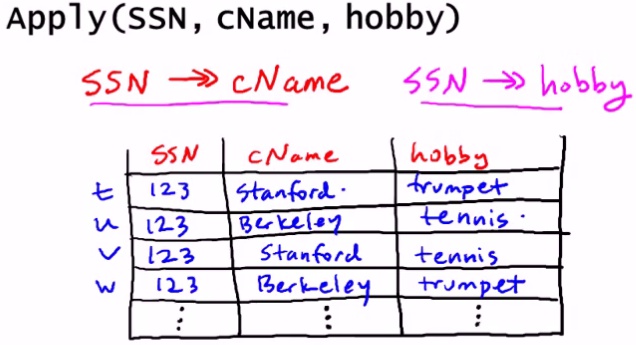 Apply(SSN, cName, hobby)
SSN ↠ cName SSN ↠ hobby
SSN cName hobby
t 123 Stanford. trumpet
u 123 Berkeley tennis.
v 123 Stanford tennis
w 123 Berkeley trumpet
⋮ ⋮ ⋮